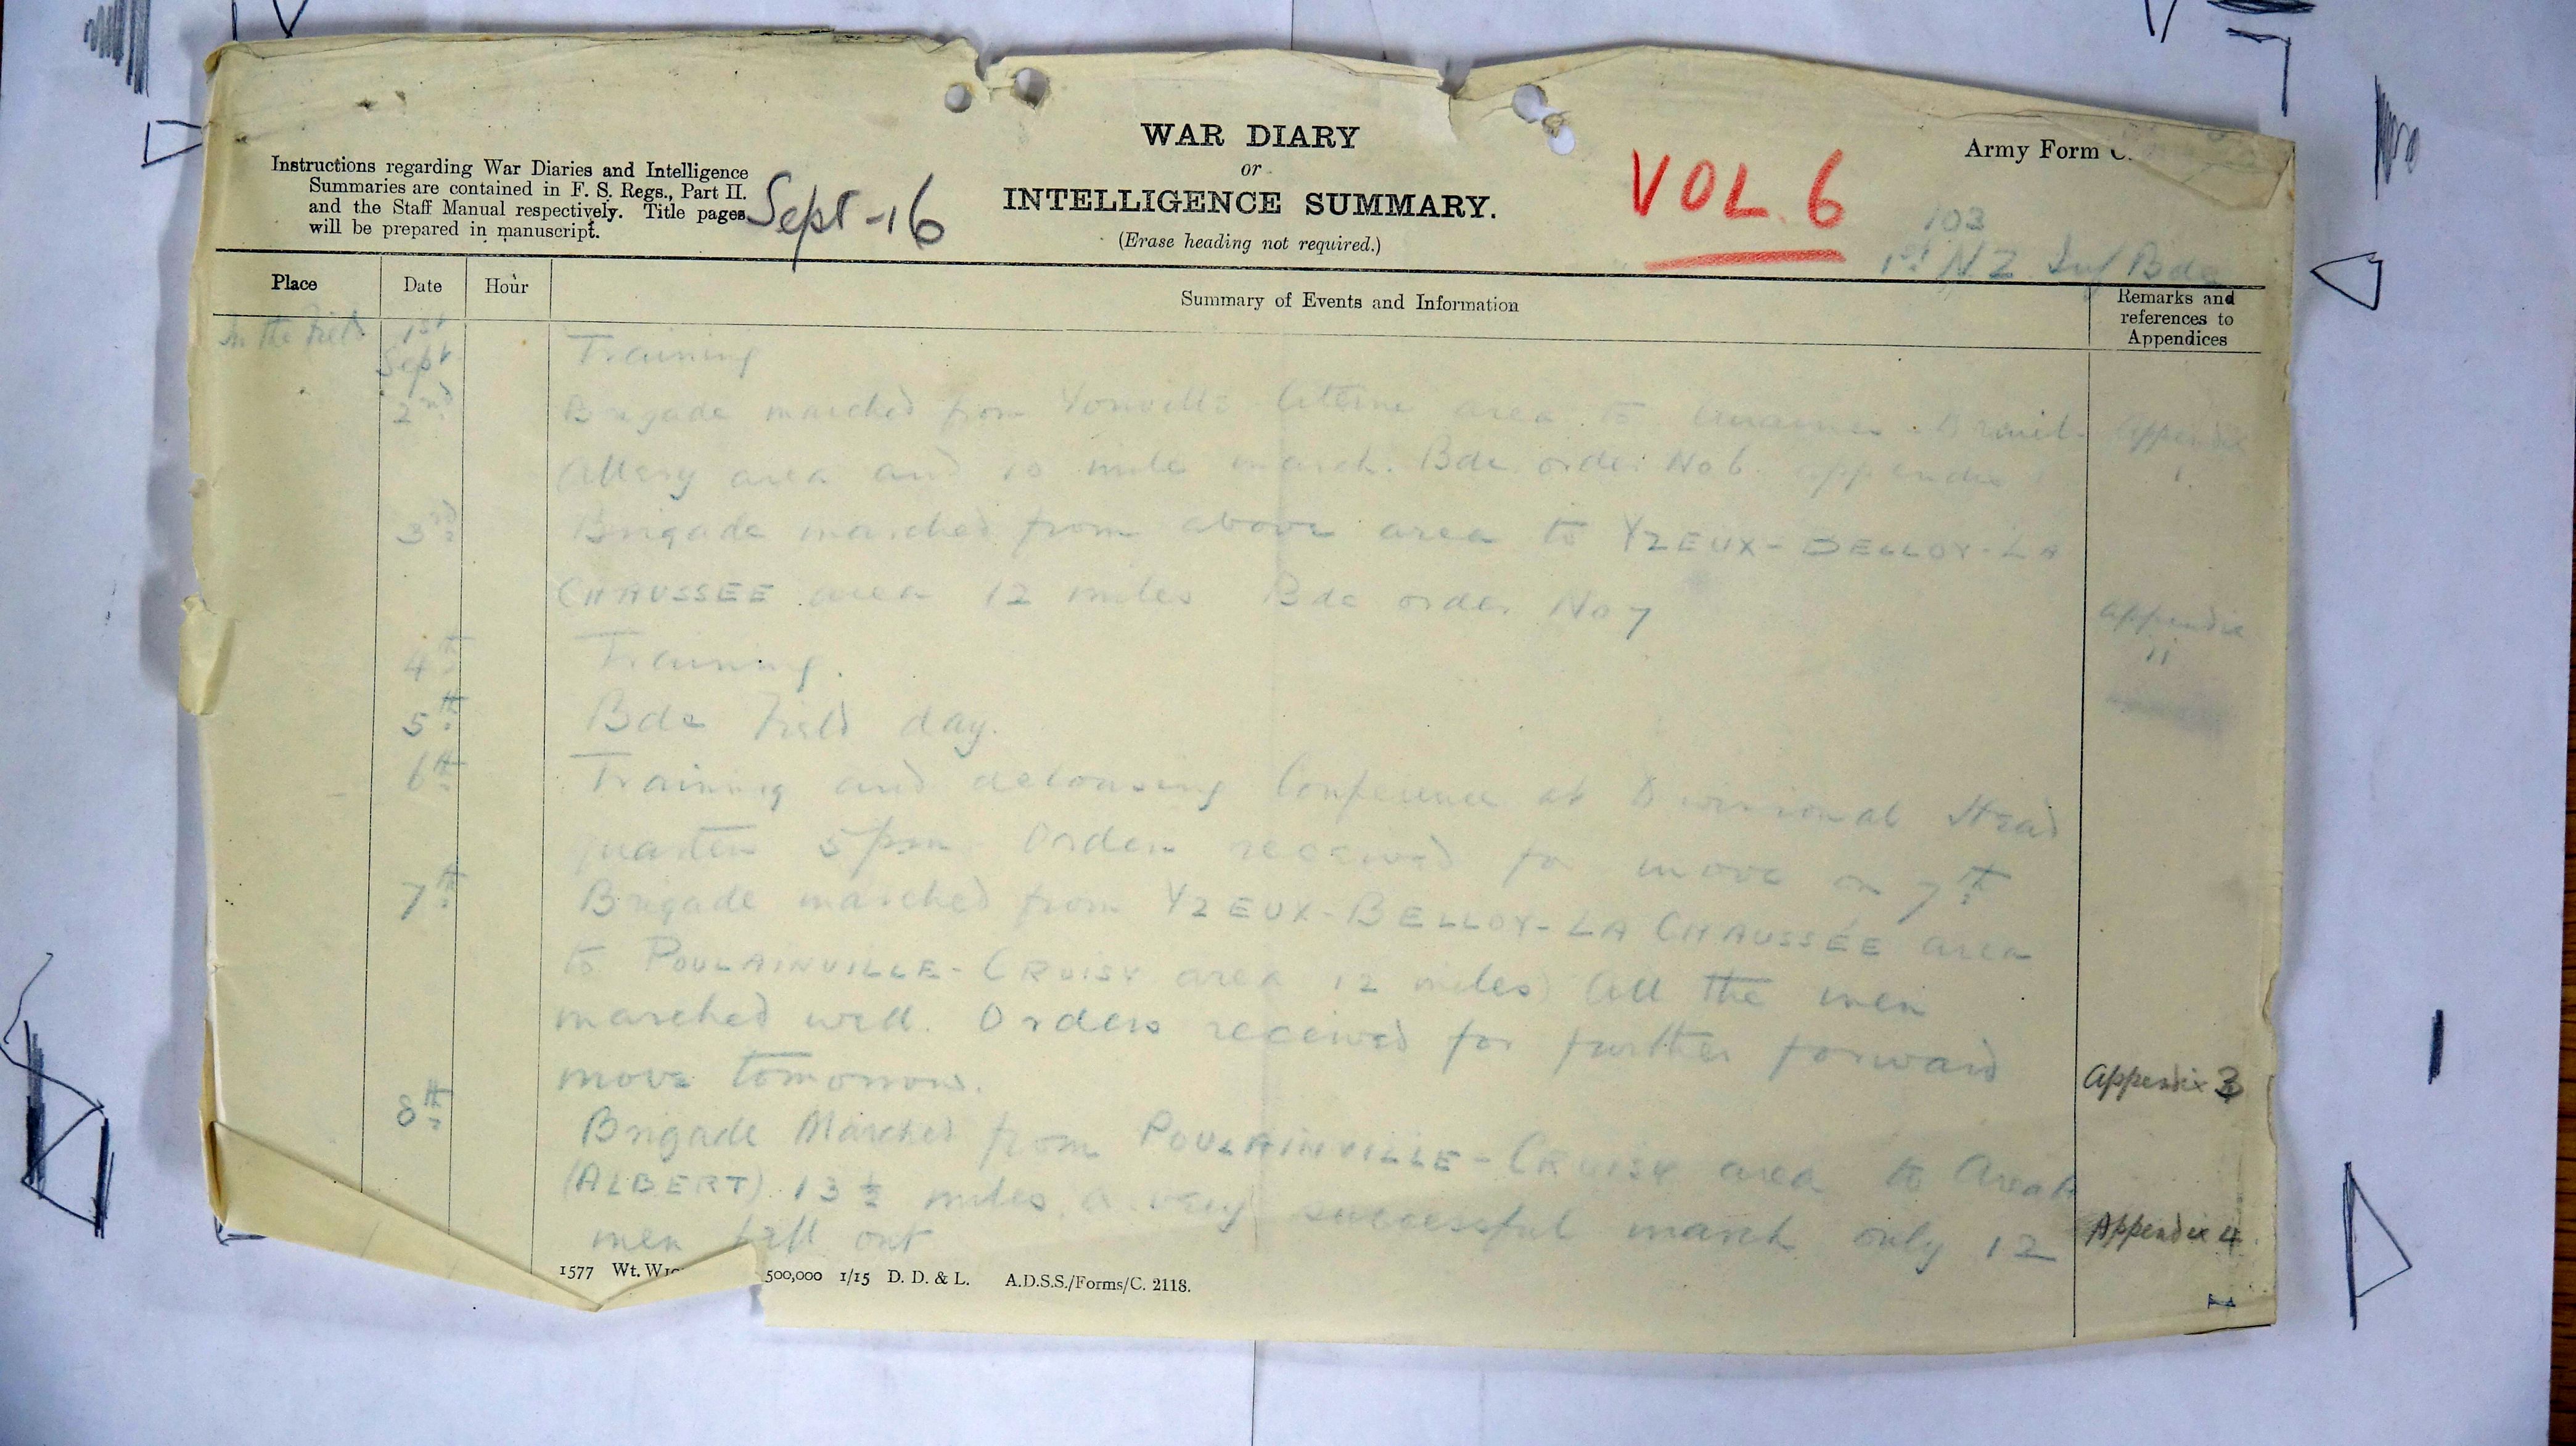 WAR DIARY
or
INTELLIGENCE SUMMARY.
(Erase heading not required.)
Instructions regarding War Diaries and Intelligence
Summaries are contained in F. S. Regs., Part II.
and the Staff Manual respectively. Title pages
will be prepared in manuscript.
Sept -16
VOL. 6
Army Form C.
103
1st N Z Inf Bde
Place Date Hour Summary of Events and Information Remarks and references to Appendices
In the Field 1st Sept Training
2nd Brigade marched from area to Appendix
Allery area and 10 mile march. Bde order No 6. appendix 1.
3rd Brigade marched from above area to YZEUX-BELLOY-LA
CHAUSSEE area 12 miles Bde order No 7 appendix 11
4th Training.
5th Bde Field day.
6th Training and delousing Conference at Divisional Head
quarters 5 pm Orders received for move on 7th
7th Brigade marched from YZEUX-BELLOY-LA CHAUSSÉE area
to POULAINVILLE-CRUISY area 12 miles) All the men
marched well. Orders received for further forward
move tomorrow. Appendix 3
8th Brigade Marched from POULAINVILLE-CRUISY area to Area
(ALBERT) 13½ miles a very successful march only 12
men fell out Appendix 4.
1577 Wt. 500,000 1/15 D. D. & L. A.D.S.S./Forms/C. 2118.